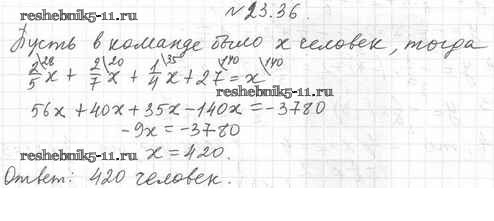 №23.36.
Пусть в команде было x человек, тогда
2/5 \28 x + 2/7 \20 x + 1/4 \35 x + 27 \140 = x \140
reshebnik5-11.ru reshebnik5-11.ru
56x + 40x + 35x - 140x = -3780
-9x = -3780
reshebnik5-11.ru reshebnik5-11.ru
x = 420.
Ответ: 420 человек.